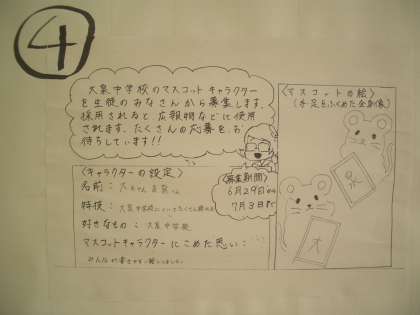 ④
大泉中学校のマスコットキャラクター
を生徒のみなさんから募集します。
採用されると広報物などに使用
されます。たくさんの応募をお
待ちしています!!
〈キャラクターの設定〉
名前:
特技:大泉中学校に
好きなもの:大泉中学校
マスコットキャラクターにこめた思い:
みんなが
〈募集期間〉
6月29日から
7月3日まで
〈マスコットの絵〉
(手足もふくめた全身像)
大